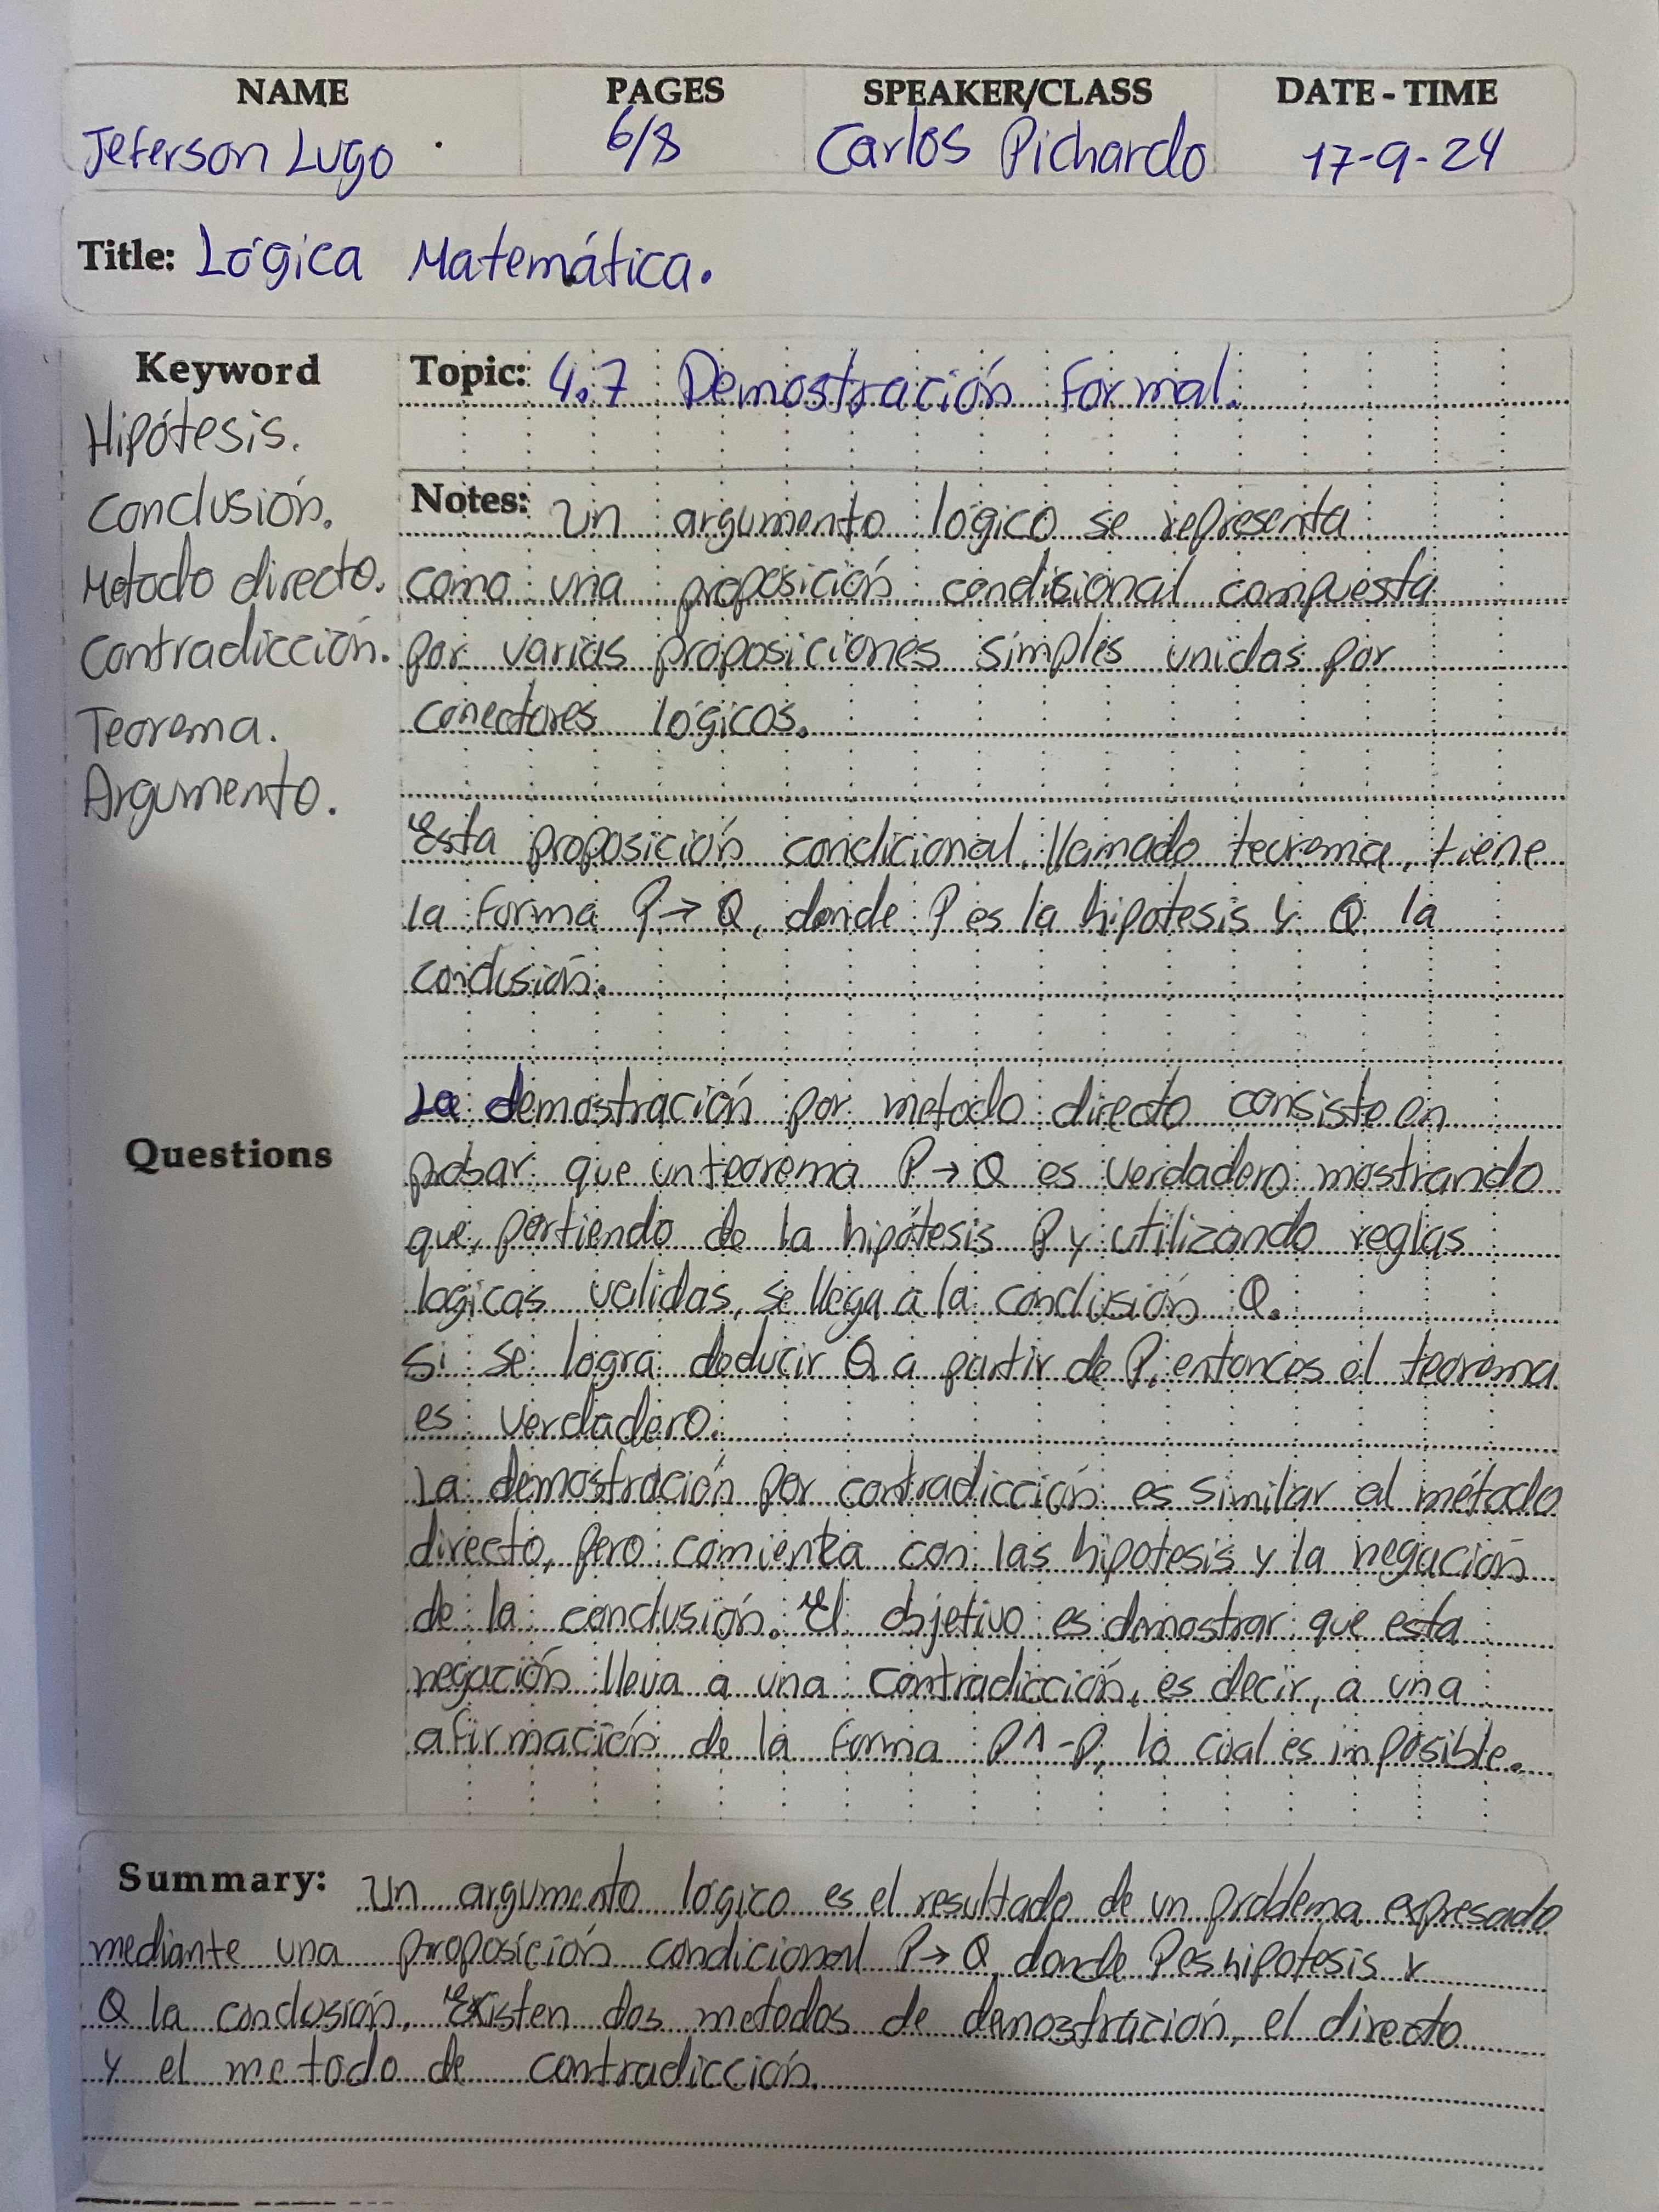 NAME PAGES SPEAKER/CLASS DATE - TIME
Jeferson Lugo . 6/8 Carlos Pichardo 17-9-24
Title: Lógica Matemática.
Keyword
Hipótesis.
Conclusión.
Metodo directo.
Contradicción.
Teorema.
Argumento.
Questions
Topic: 4.7 Demostración formal.
Notes: Un argumento lógico se representa
como una proposición condisional compuesta
por varias proposiciones simples unidas por
conectores lógicos.
Esta proposición condicional, llamado teorema, tiene
la forma P→Q, donde P es la hipotesis y Q la
conclusión.
La demostración por metodo directo consiste en
probar que un teorema P→Q es verdadero mostrando
que, partiendo de la hipótesis P y utilizando reglas
logicas validas, se llega a la conclusión Q.
Si se logra deducir Q a partir de P, entonces el teorema
es verdadero.
La demostración por contradicción es similar al método
directo, pero comienza con las hipotesis y la negación
de la conclusión. El objetivo es demostrar que esta
negación lleva a una contradicción, es decir, a una
afirmación de la forma P^-P, lo cual es imposible.
Summary: Un argumento lógico es el resultado de un problema expresado
mediante una proposición condicional P→Q, donde P es hipotesis y
Q la conclusión. Existen dos metodos de demostración, el directo
y el metodo de contradicción.